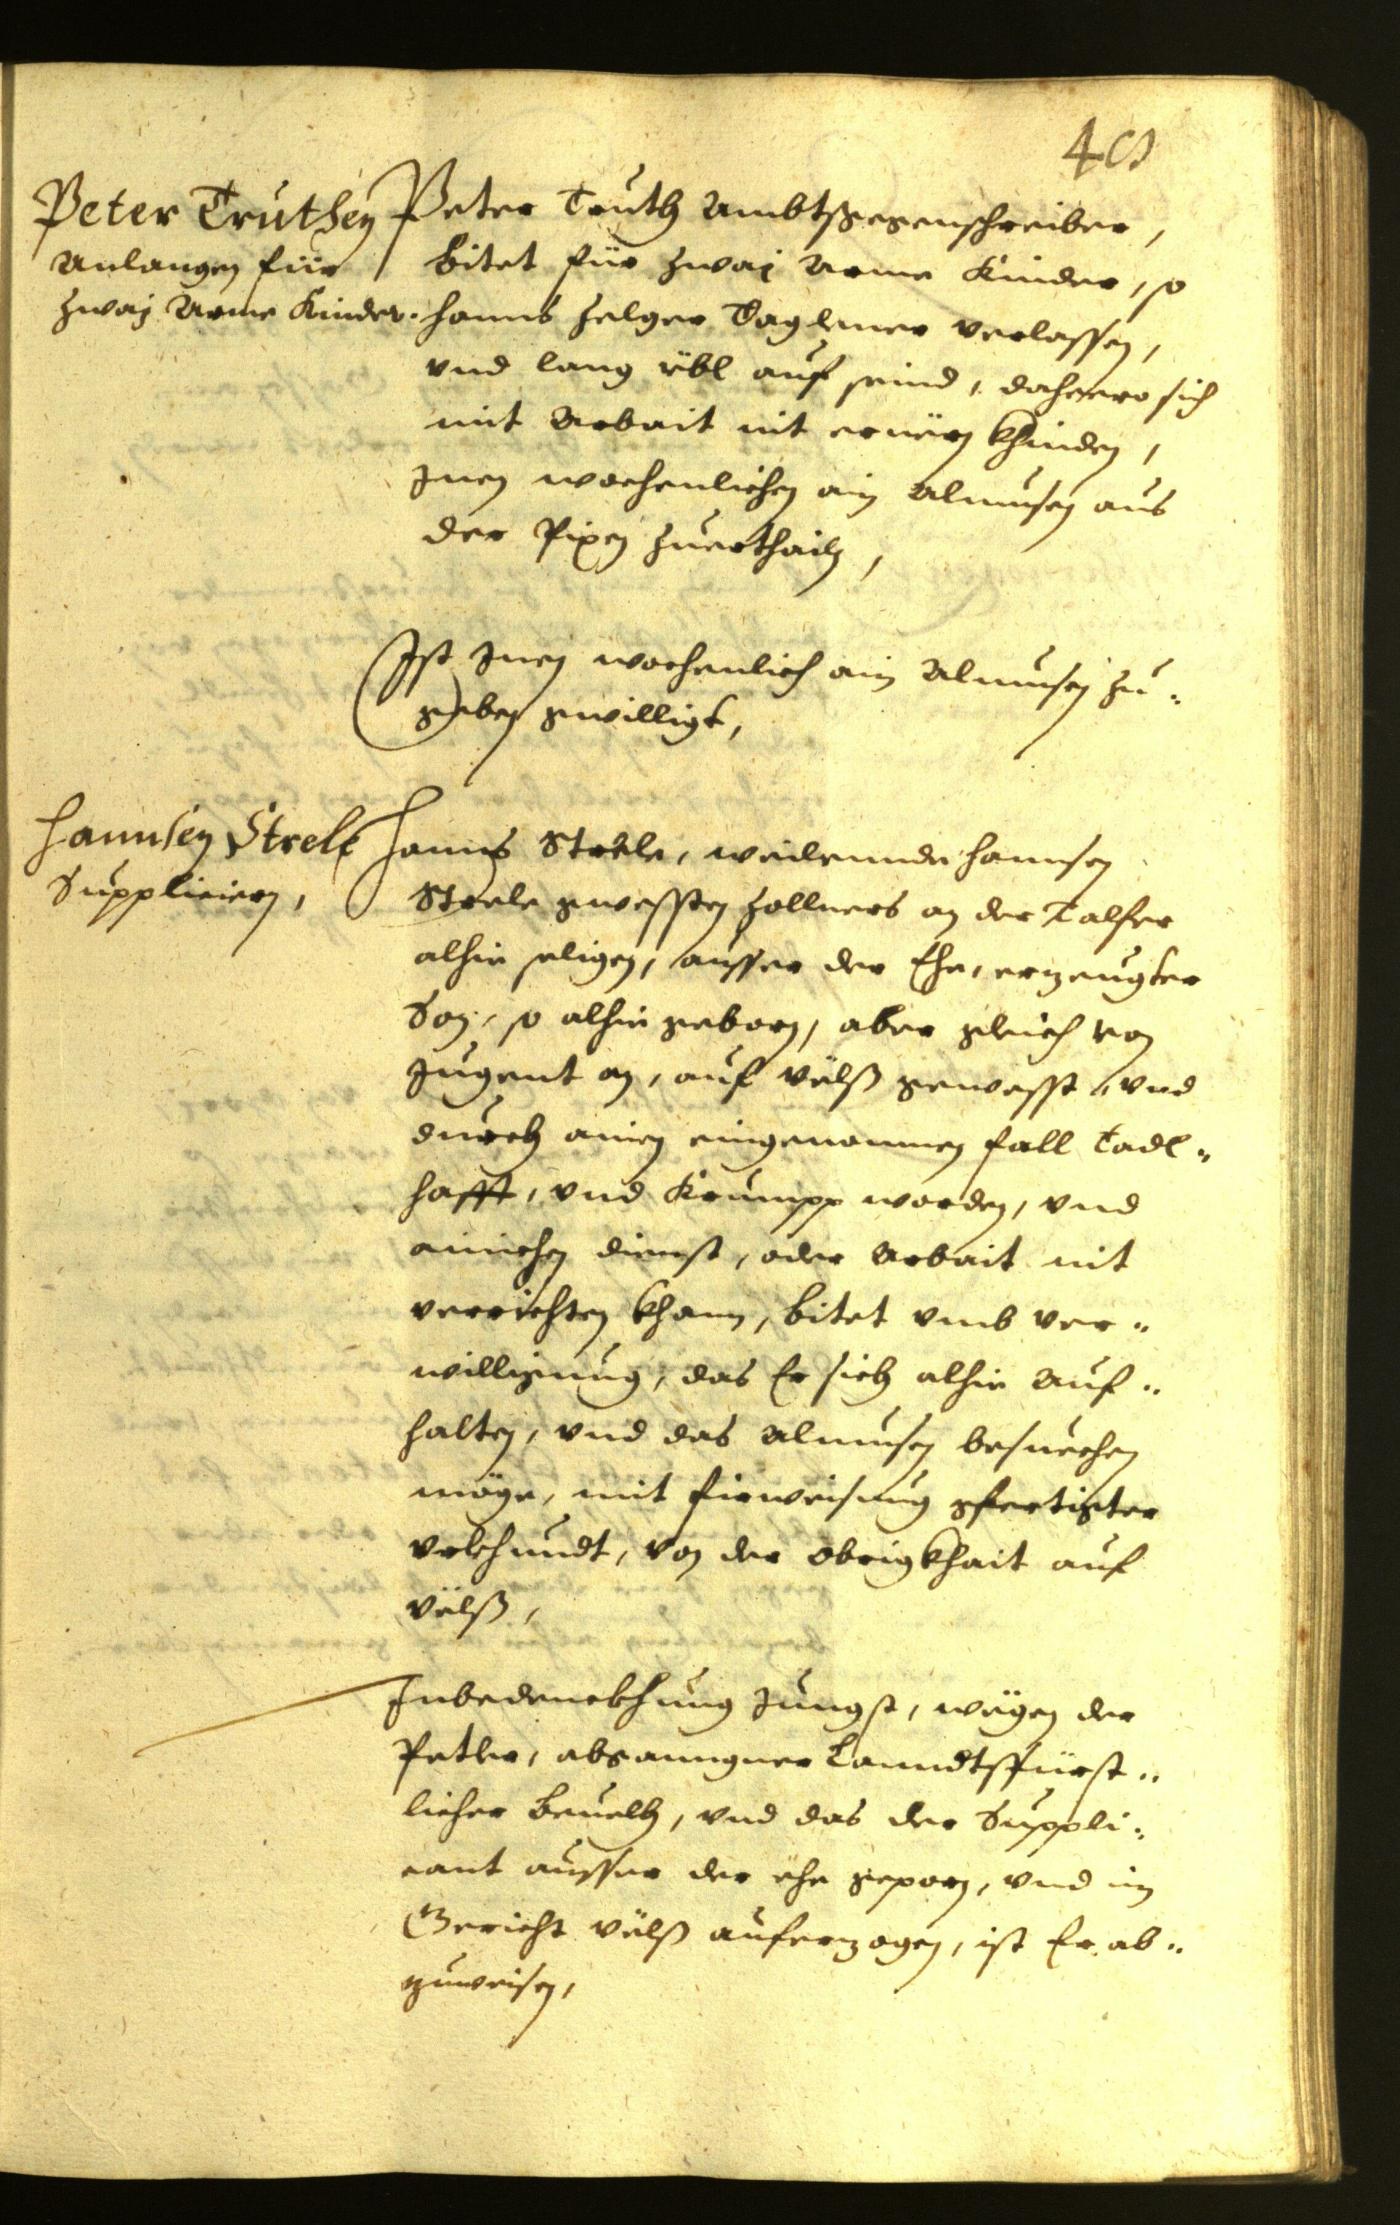 40
Peter Truthen
Anlangen für
zwaÿ Arme Kinder.
Peter Truth Ambtsgegenschreiber,
bitet für zwaÿ Arme Kinder, so
hanns Zelger Taglener verlassen,
vnd lang übl auf seind, dahero sich
mit Arbait nit ernörn khinden,
Inen wochenlichen ain Almusen aus
der Pixen zuerthailn,
Ist Inen wochenlich ain Almusen zu-
geben gewilligt,
Hannsen Strele
Supplicieren,
Hanns Strele, weilennde hannsen
Strele gewessten Zollners an der Talfer
alhie seligen, ausser der Ehe, erzeugter
Son, so alhie geborn, aber gleich von
Jugent an, auf Völß gewesst, vnd
durch ainen eingenomnen fall Tadl-
hafft, vnd Krumpp worden, vnd
ainichen dienst, oder Arbait nit
verrichten khann, bitet vmb ver-
willigung, das Er sich alhie Auf-
halten, vnd das Almusen besuechen
möge, mit firweisung gfertigter
vrkhundt, von der Obrigkhait auf
Völß,
Inbedenckhung Jungst, wögen der
Petler, abganngner Lanndtsfürst-
licher Beuelh, vnd das der Suppli-
cant ausser der ehe geporn, vnd im
Gericht Völß auferzogen, ist Er ab-
zuweisen,